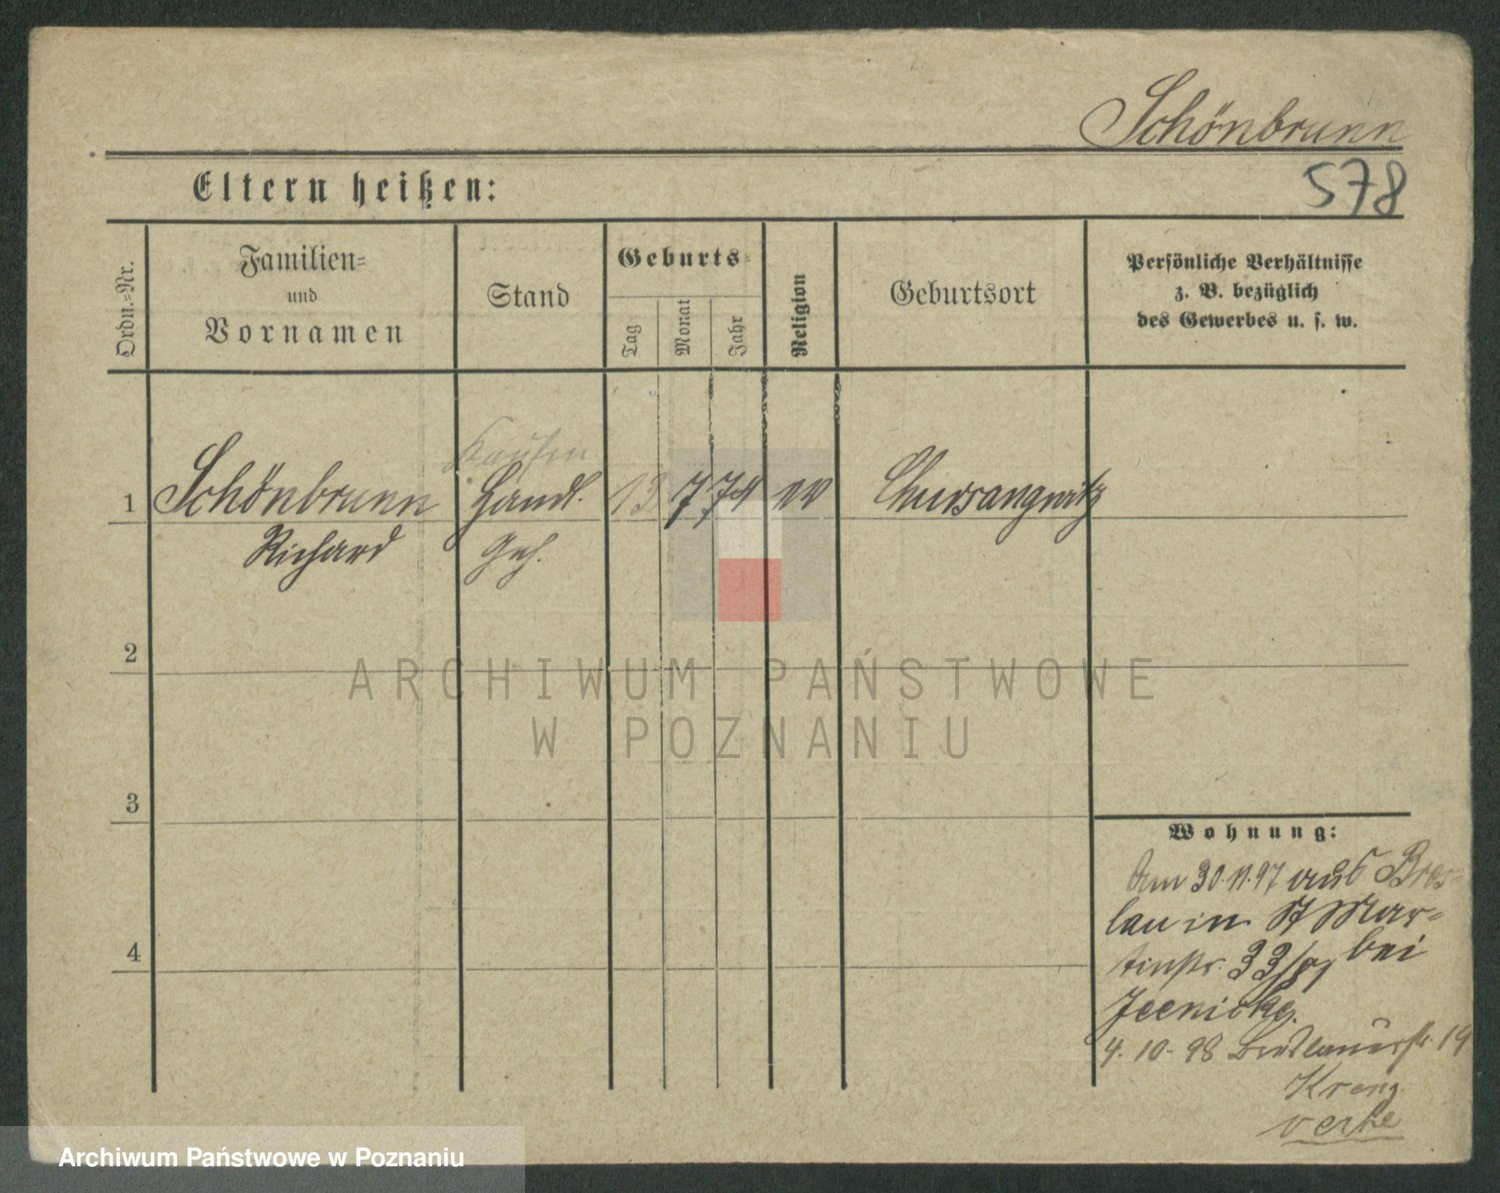 Schönbrunn
Eltern heißen:
578
Ordn.=Nr.
Familien=
und
Vornamen
Stand
Geburts=
Tag
Monat
Jahr
Religion
Geburtsort
Persönliche Verhältnisse
z. B. bezüglich
des Gewerbes u. s. w.
1
Schönbrunn
Richard
Kaufm
Handl.
Geh.
13
7
74
ev
Chursangwitz
2
3
4
ARCHIWUM PAŃSTWOWE
W POZNANIU
Wohnung:
Am 30.11.97 aus Bres=
lau in St Mar=
tinstr. 33 bei
Jeenicke.
4.10-98 19
Archiwum Państwowe w Poznaniu